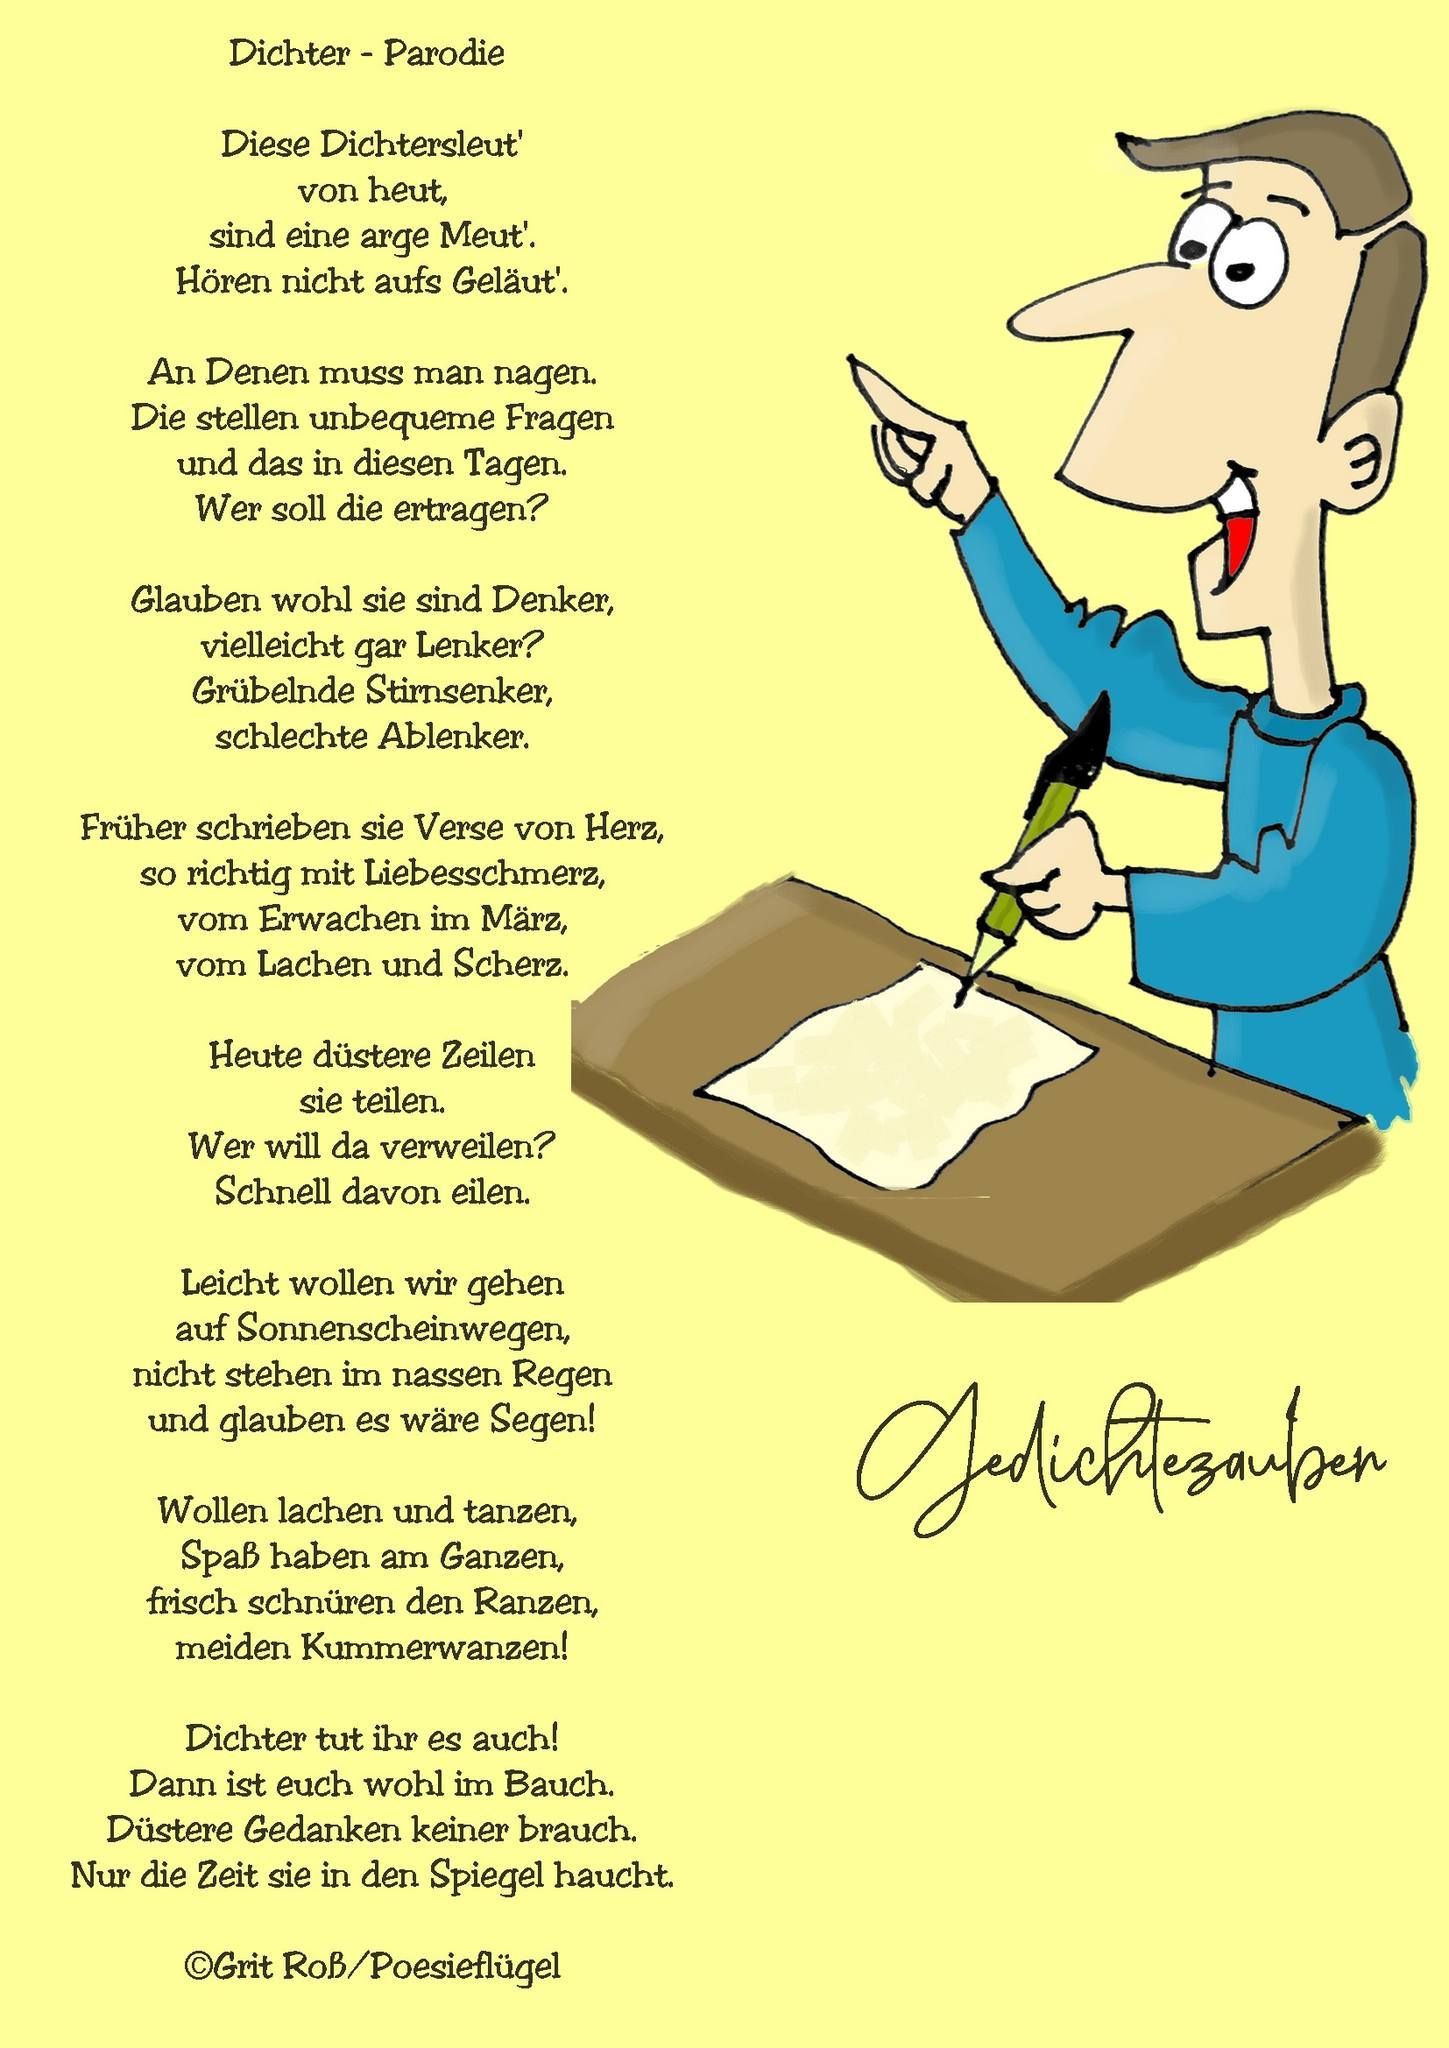 Dichter - Parodie
Diese Dichtersleut'
von heut,
sind eine arge Meut'.
Hören nicht aufs Geläut'.
An Denen muss man nagen.
Die stellen unbequeme Fragen
und das in diesen Tagen.
Wer soll die ertragen?
Glauben wohl sie sind Denker,
vielleicht gar Lenker?
Grübelnde Stirnsenker,
schlechte Ablenker.
Früher schrieben sie Verse von Herz,
so richtig mit Liebesschmerz,
vom Erwachen im März,
vom Lachen und Scherz.
Heute düstere Zeilen
sie teilen.
Wer will da verweilen?
Schnell davon eilen.
Leicht wollen wir gehen
auf Sonnenscheinwegen,
nicht stehen im nassen Regen
und glauben es wäre Segen!
Wollen lachen und tanzen,
Spaß haben am Ganzen,
frisch schnüren den Ranzen,
meiden Kummerwanzen!
Dichter tut ihr es auch!
Dann ist euch wohl im Bauch.
Düstere Gedanken keiner brauch.
Nur die Zeit sie in den Spiegel haucht.
©Grit Roß/Poesieflügel
Gedichtezauber